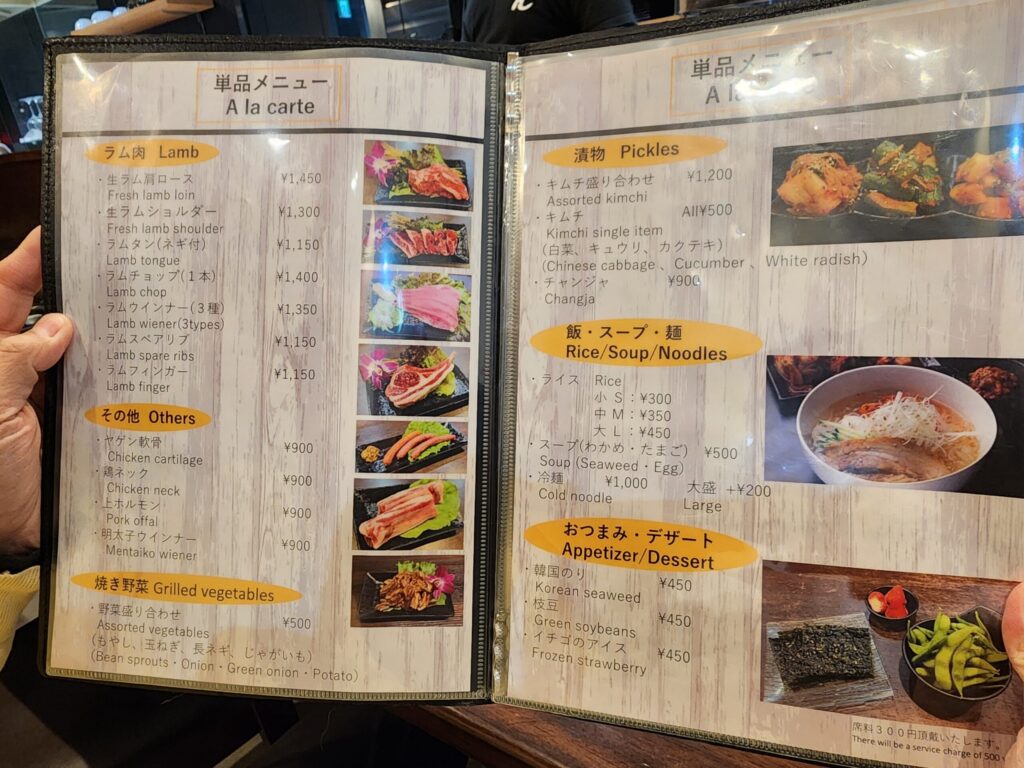 単品メニュー
A la carte
ラム肉 Lamb
・生ラム肩ロース ¥1,450
Fresh lamb loin
・生ラムショルダー ¥1,300
Fresh lamb shoulder
・ラムタン(ネギ付) ¥1,150
Lamb tongue
・ラムチョップ(1本) ¥1,400
Lamb chop
・ラムウインナー(3種) ¥1,350
Lamb wiener(3types)
・ラムスペアリブ ¥1,150
Lamb spare ribs
・ラムフィンガー ¥1,150
Lamb finger
その他 Others
・ヤゲン軟骨 ¥900
Chicken cartilage
・鶏ネック ¥900
Chicken neck
・上ホルモン ¥900
Pork offal
・明太子ウインナー ¥900
Mentaiko wiener
焼き野菜 Grilled vegetables
・野菜盛り合わせ ¥500
Assorted vegetables
(もやし、玉ねぎ、長ネギ、じゃがいも)
(Bean sprouts・Onion・Green onion・Potato)
単品メニュー
A la
漬物 Pickles
・キムチ盛り合わせ ¥1,200
Assorted kimchi
・キムチ All¥500
Kimchi single item
(白菜、キュウリ、カクテキ)
(Chinese cabbage、Cucumber、White radish)
・チャンジャ ¥900
Changja
飯・スープ・麺
Rice/Soup/Noodles
・ライス Rice
小 S：¥300
中 M：¥350
大 L：¥450
・スープ(わかめ・たまご) ¥500
Soup (Seaweed・Egg)
・冷麺 ¥1,000 大盛 +¥200
Cold noodle Large
おつまみ・デザート
Appetizer/Dessert
・韓国のり ¥450
Korean seaweed
・枝豆 ¥450
Green soybeans
・イチゴのアイス ¥450
Frozen strawberry
席料３００円頂戴いたします。
There will be a service charge of 500